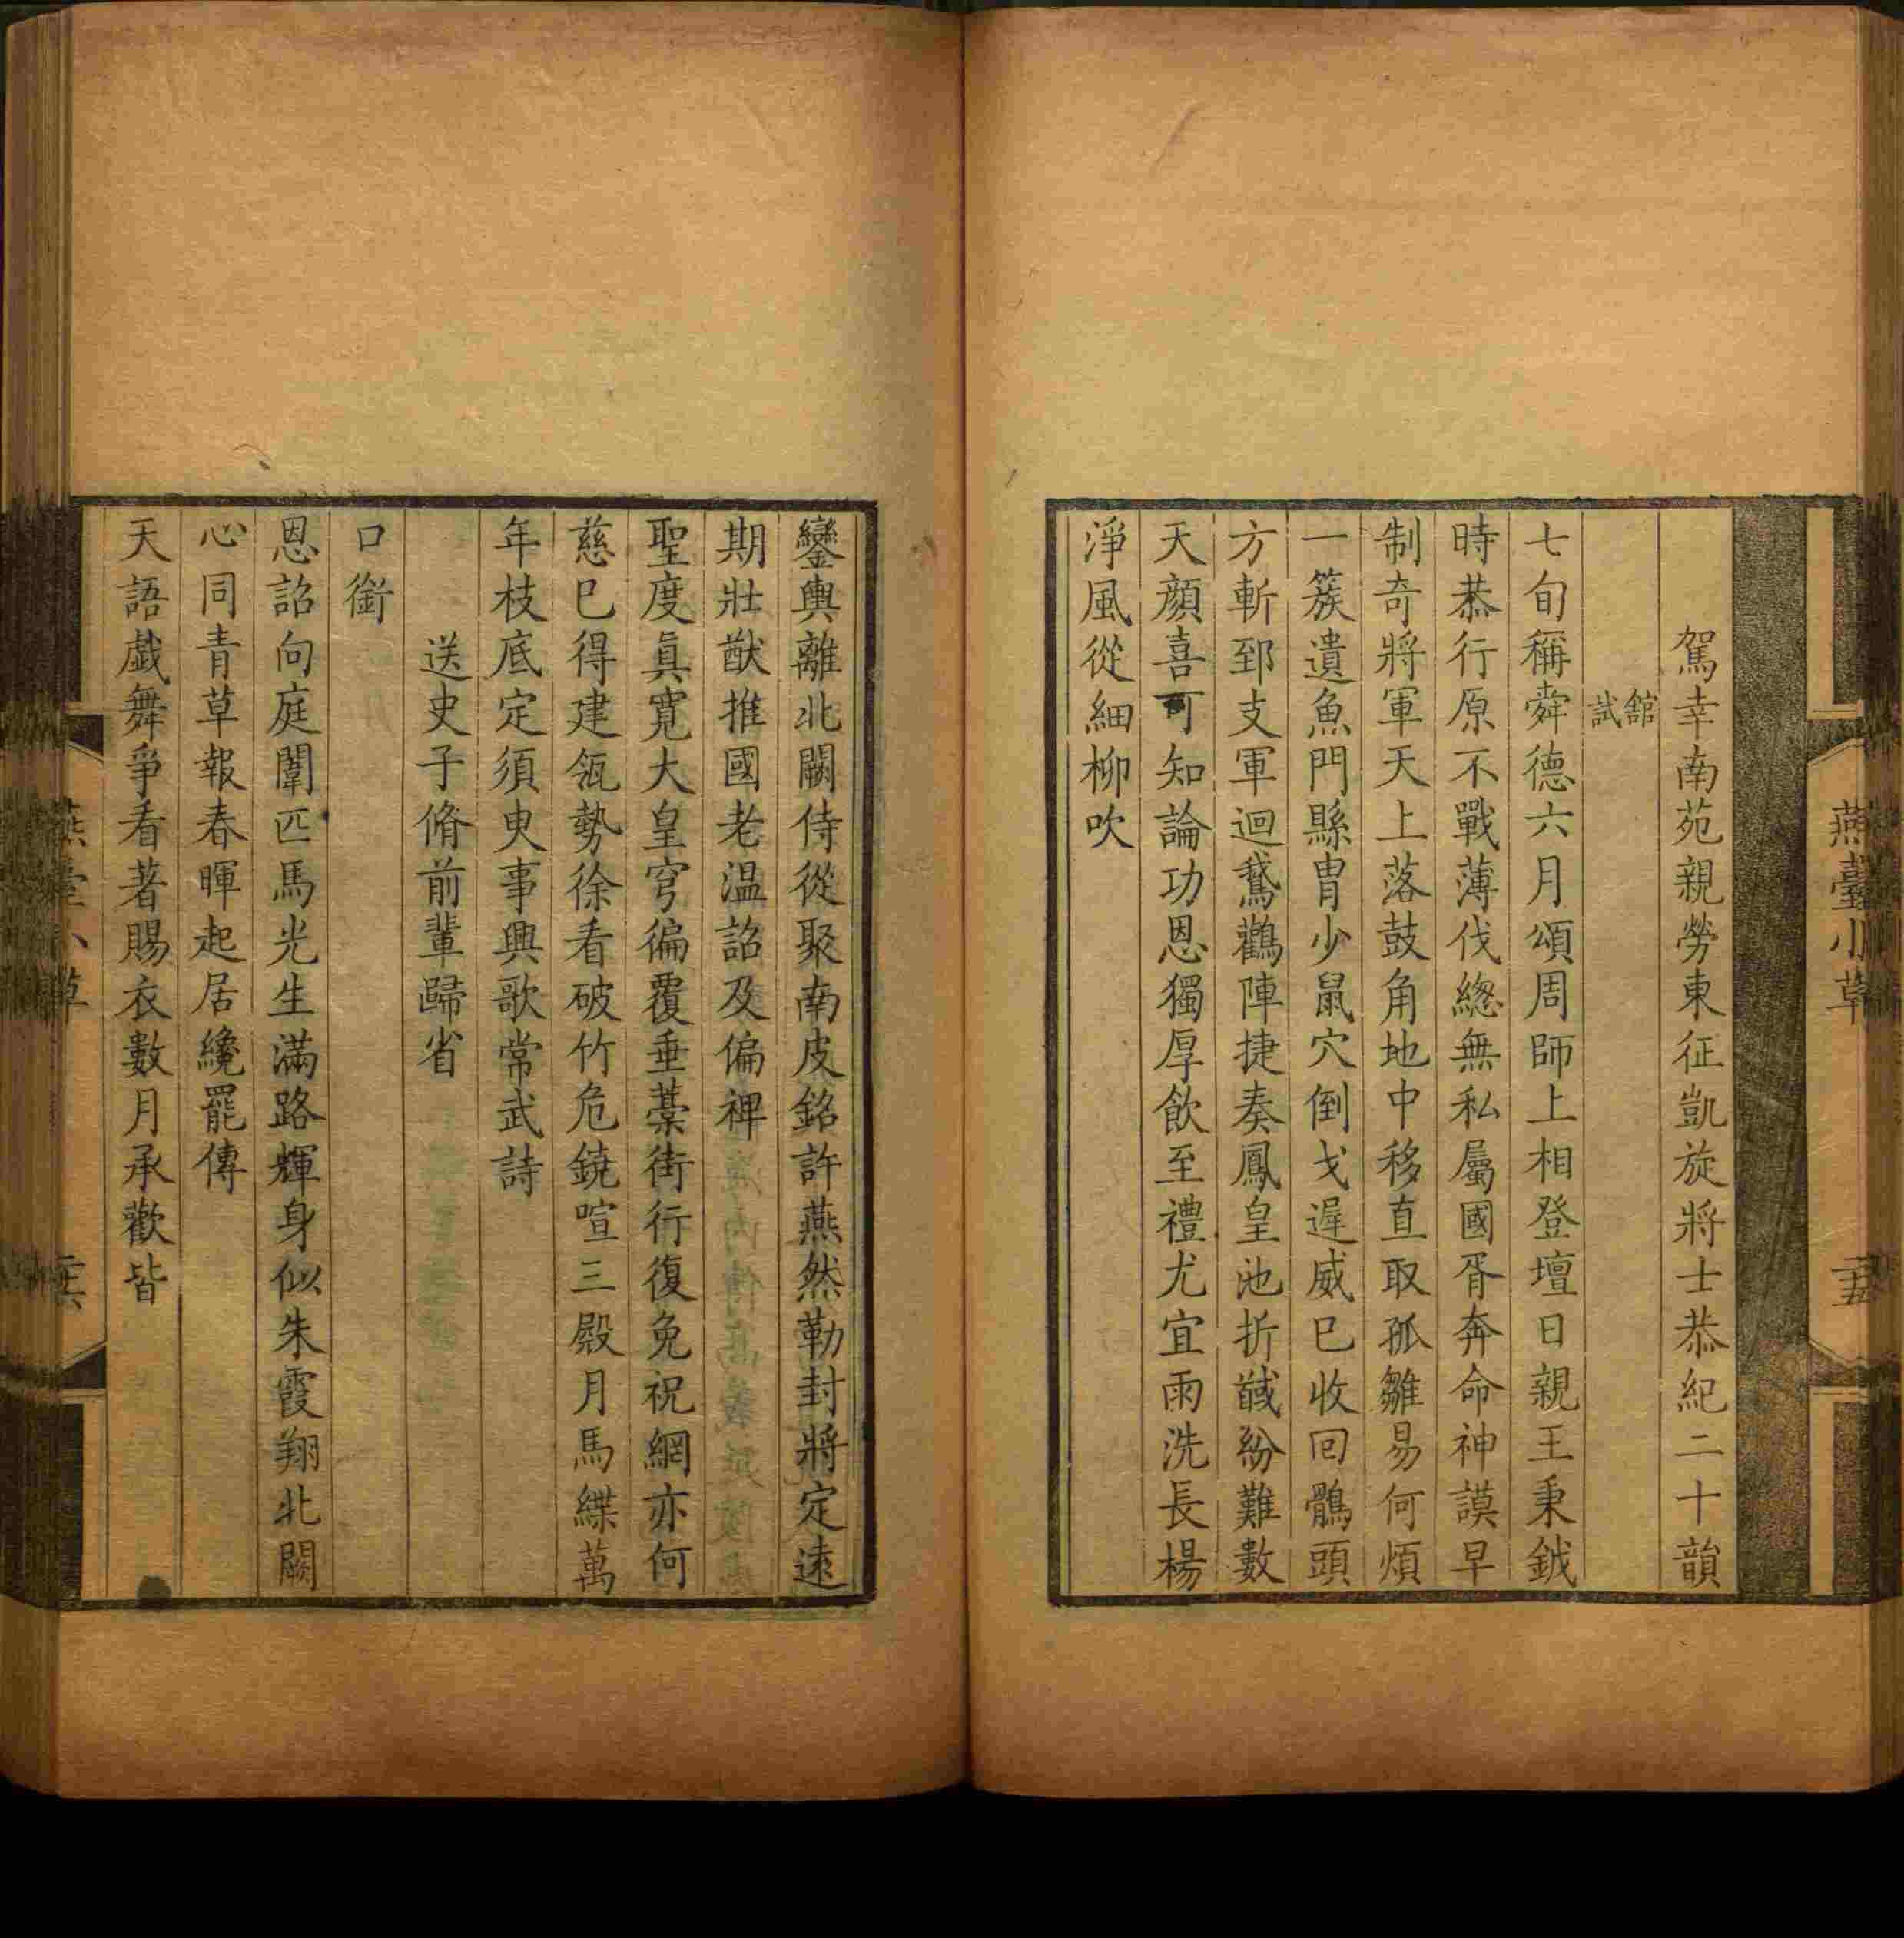 燕臺小草
二十五
駕幸南苑親勞東征凱旋將士恭紀二十韻
館試
七旬稱舜德六月頌周師上相登壇日親王秉鉞
時恭行原不戰薄伐緫無私屬國胥奔命神謨早
制奇將軍天上落鼓角地中移直取孤雛易何煩
一簇遺魚門縣胄少鼠穴倒戈遲威巳收回鶻頭
方斬郅支軍迴鵞鸛陣捷奏鳳皇池折馘紛難數
天顔喜可知論功恩獨厚飲至禮尤宜雨洗長楊
淨風從細柳吹
鑾輿離北闕侍從聚南皮銘許燕然勒封將定遠
期壯猷推國老温詔及偏裨
聖度眞寬大皇穹徧覆垂藁街行復免祝網亦何
慈巳得建瓴勢徐看破竹危鐃喧三殿月馬緤萬
年枝底定須臾事興歌常武詩
送史子脩前輩歸省
口銜
恩詔向庭闈匹馬光生滿路輝身似朱霞翔北闕
心同青草報春暉起居纔罷傳
天語戯舞爭看著賜衣數月承歡皆
燕臺小草